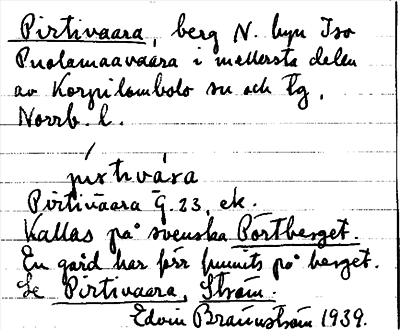 Pirtivaara, berg N. byn Iso
Puolamaavaara i mellersta delen
av Korpilombolo sn och tg,
Norrb. l.
pirtivāra
Pirtivaara G. 23, ek.
Kallas på svenska Pörtberget.
En gård har förr funnits på berget.
Se Pirtivaara, Ström.
Edvin Brännström 1939.